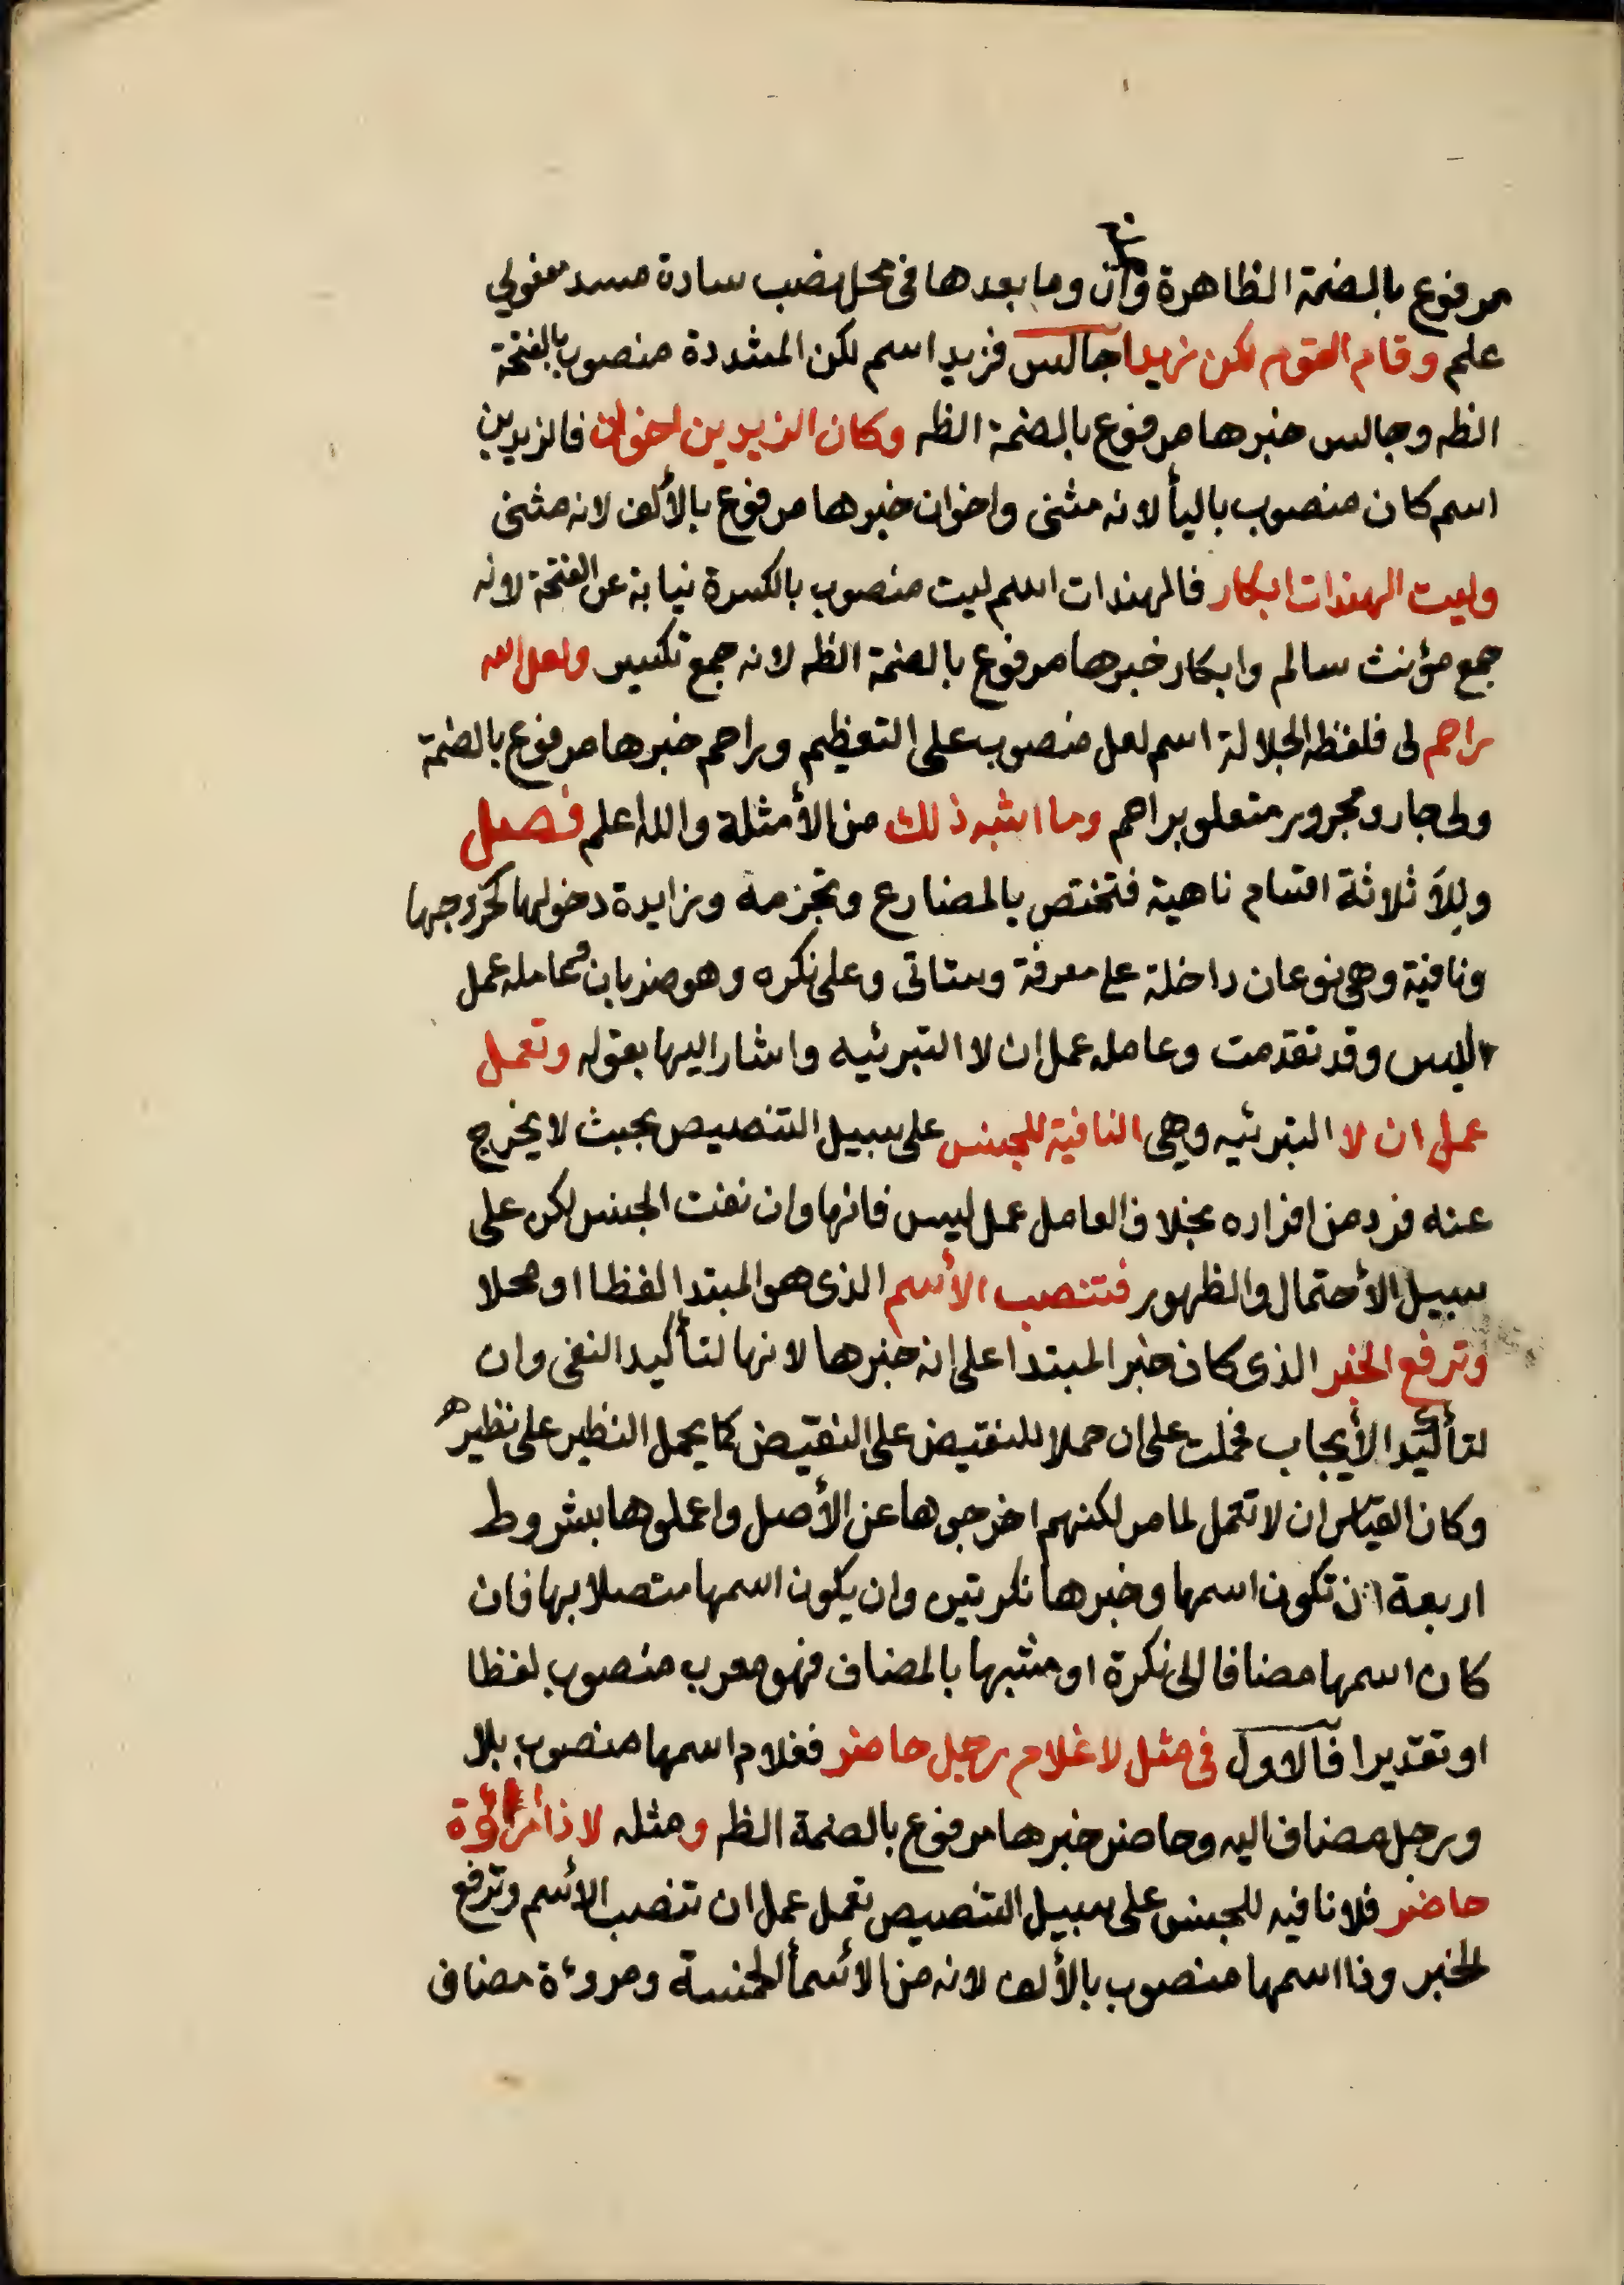 مرفوع بالضمة الظاهرة وأن وما بعدها في محل نصب سادة مسد مفعولي
علم وقام القوم لكن زيدا جالس فزيد اسم لكن المشددة منصوب بالفتحة
الظه وجالس خبرها مرفوع بالضمة الظه وكان الزيدين اخوان فالزيدين
اسم كان منصوب باليأ لانه مثنى واخوان خبرها مرفوع بالألف لانه مثنى
وليت الهندات ابكار فالهندات اسم ليت منصوب بالكسرة نيابة عن الفتحة لانه
جمع مؤنث سالم وابكار خبرها مرفوع بالضمة الظه لانه جمع تكسير ولعل الله
راحم لى فلفظه الجلالة اسم لعل منصوب على التعظيم وراحم خبرها مرفوع بالضمة
ولى جار ومجرور متعلق براحم وما اشبه ذلك من الأمثلة والله اعلم فصل
وللا ثلاثة اقسام ناهية فتختص بالمضارع وتجزمه وزايدة دخولها كخروجها
ونافية وهى نوعان داخلة على معرفة وستاتى وعلى نكره وهو ضربان عامله عمل
ليس وقد تقدمت وعامله عمل ان لا التبرئيه واشار اليها بقوله وتعمل
عمل ان لا التبرئيه وهي النافية للجنس على سبيل التنصيص بحيث لا يخرج
عنه فرد من افراده بخلاف العامل عمل ليس فانها وان نفت الجنس لكن على
سبيل الأحتمال والظهور فتنصب الأسم الذى هو المبتدا لفظا او محلا
وترفع الخبر الذى كان خبر المبتدا على انه خبرها لانها لتأكيد النفى وان
لتأكيد الأيجاب فحملت على ان حملا للنقيض على النقيض كما يحمل النظير على نظيره
وكان القياس ان لا تعمل لما مر لكنهم اخرجوها عن الأصل واعملوها بشروط
اربعة ان تكون اسمها وخبرها نكرتين وان يكون اسمها متصلا بها فان
كان اسمها مضافا الى نكرة او مشبها بالمضاف فهو معرب منصوب لفظا
او تقديرا فالاول فى مثل لا غلام رجل حاضر فغلام اسمها منصوب بلا
ورجل مضاف اليه وحاضر خبرها مرفوع بالضمة الظه ومثله لا ذا
حاضر فلا نافيه للجنس على سبيل التنصيص تعمل عمل ان تنصب الأسم وترفع
الخبر وذا اسمها منصوب بالألف لانه من الأسمأ الخمسة ومروءة مضاف